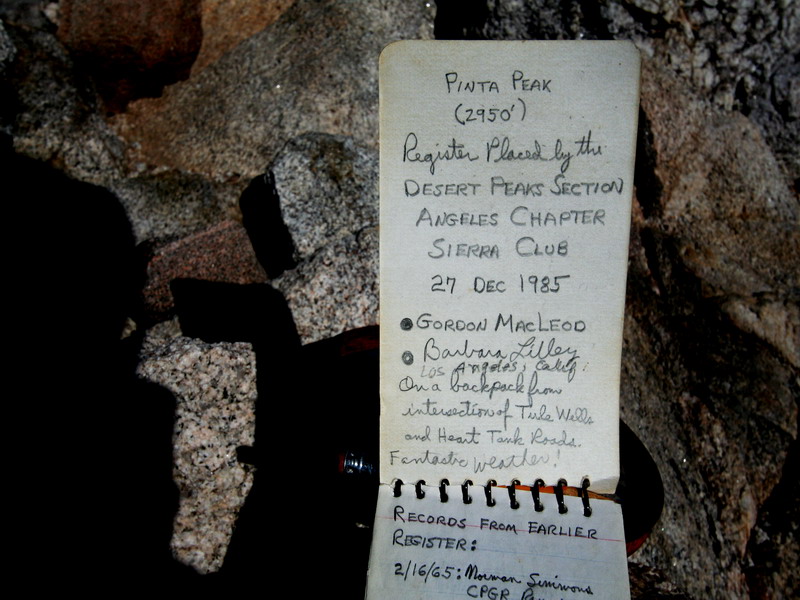 PINTA PEAK
(2950')
Register Placed by the
DESERT PEAKS SECTION
ANGELES CHAPTER
SIERRA CLUB
27 DEC 1985
GORDON MACLEOD
Barbara Lilley
Los Angeles, Calif.
On a backpack from
intersection of Tule Wells
and Heart Tank Roads.
Fantastic weather!
RECORDS FROM EARLIER
REGISTER:
2/16/65: Norman Simmons
CPGR